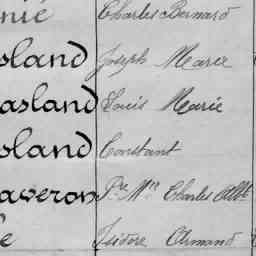 nie Charles Bernard
sland Joseph Marie
asland Louis Marie
oland Constant
averon Pre Mie Charles Albt
e Isidore Armand